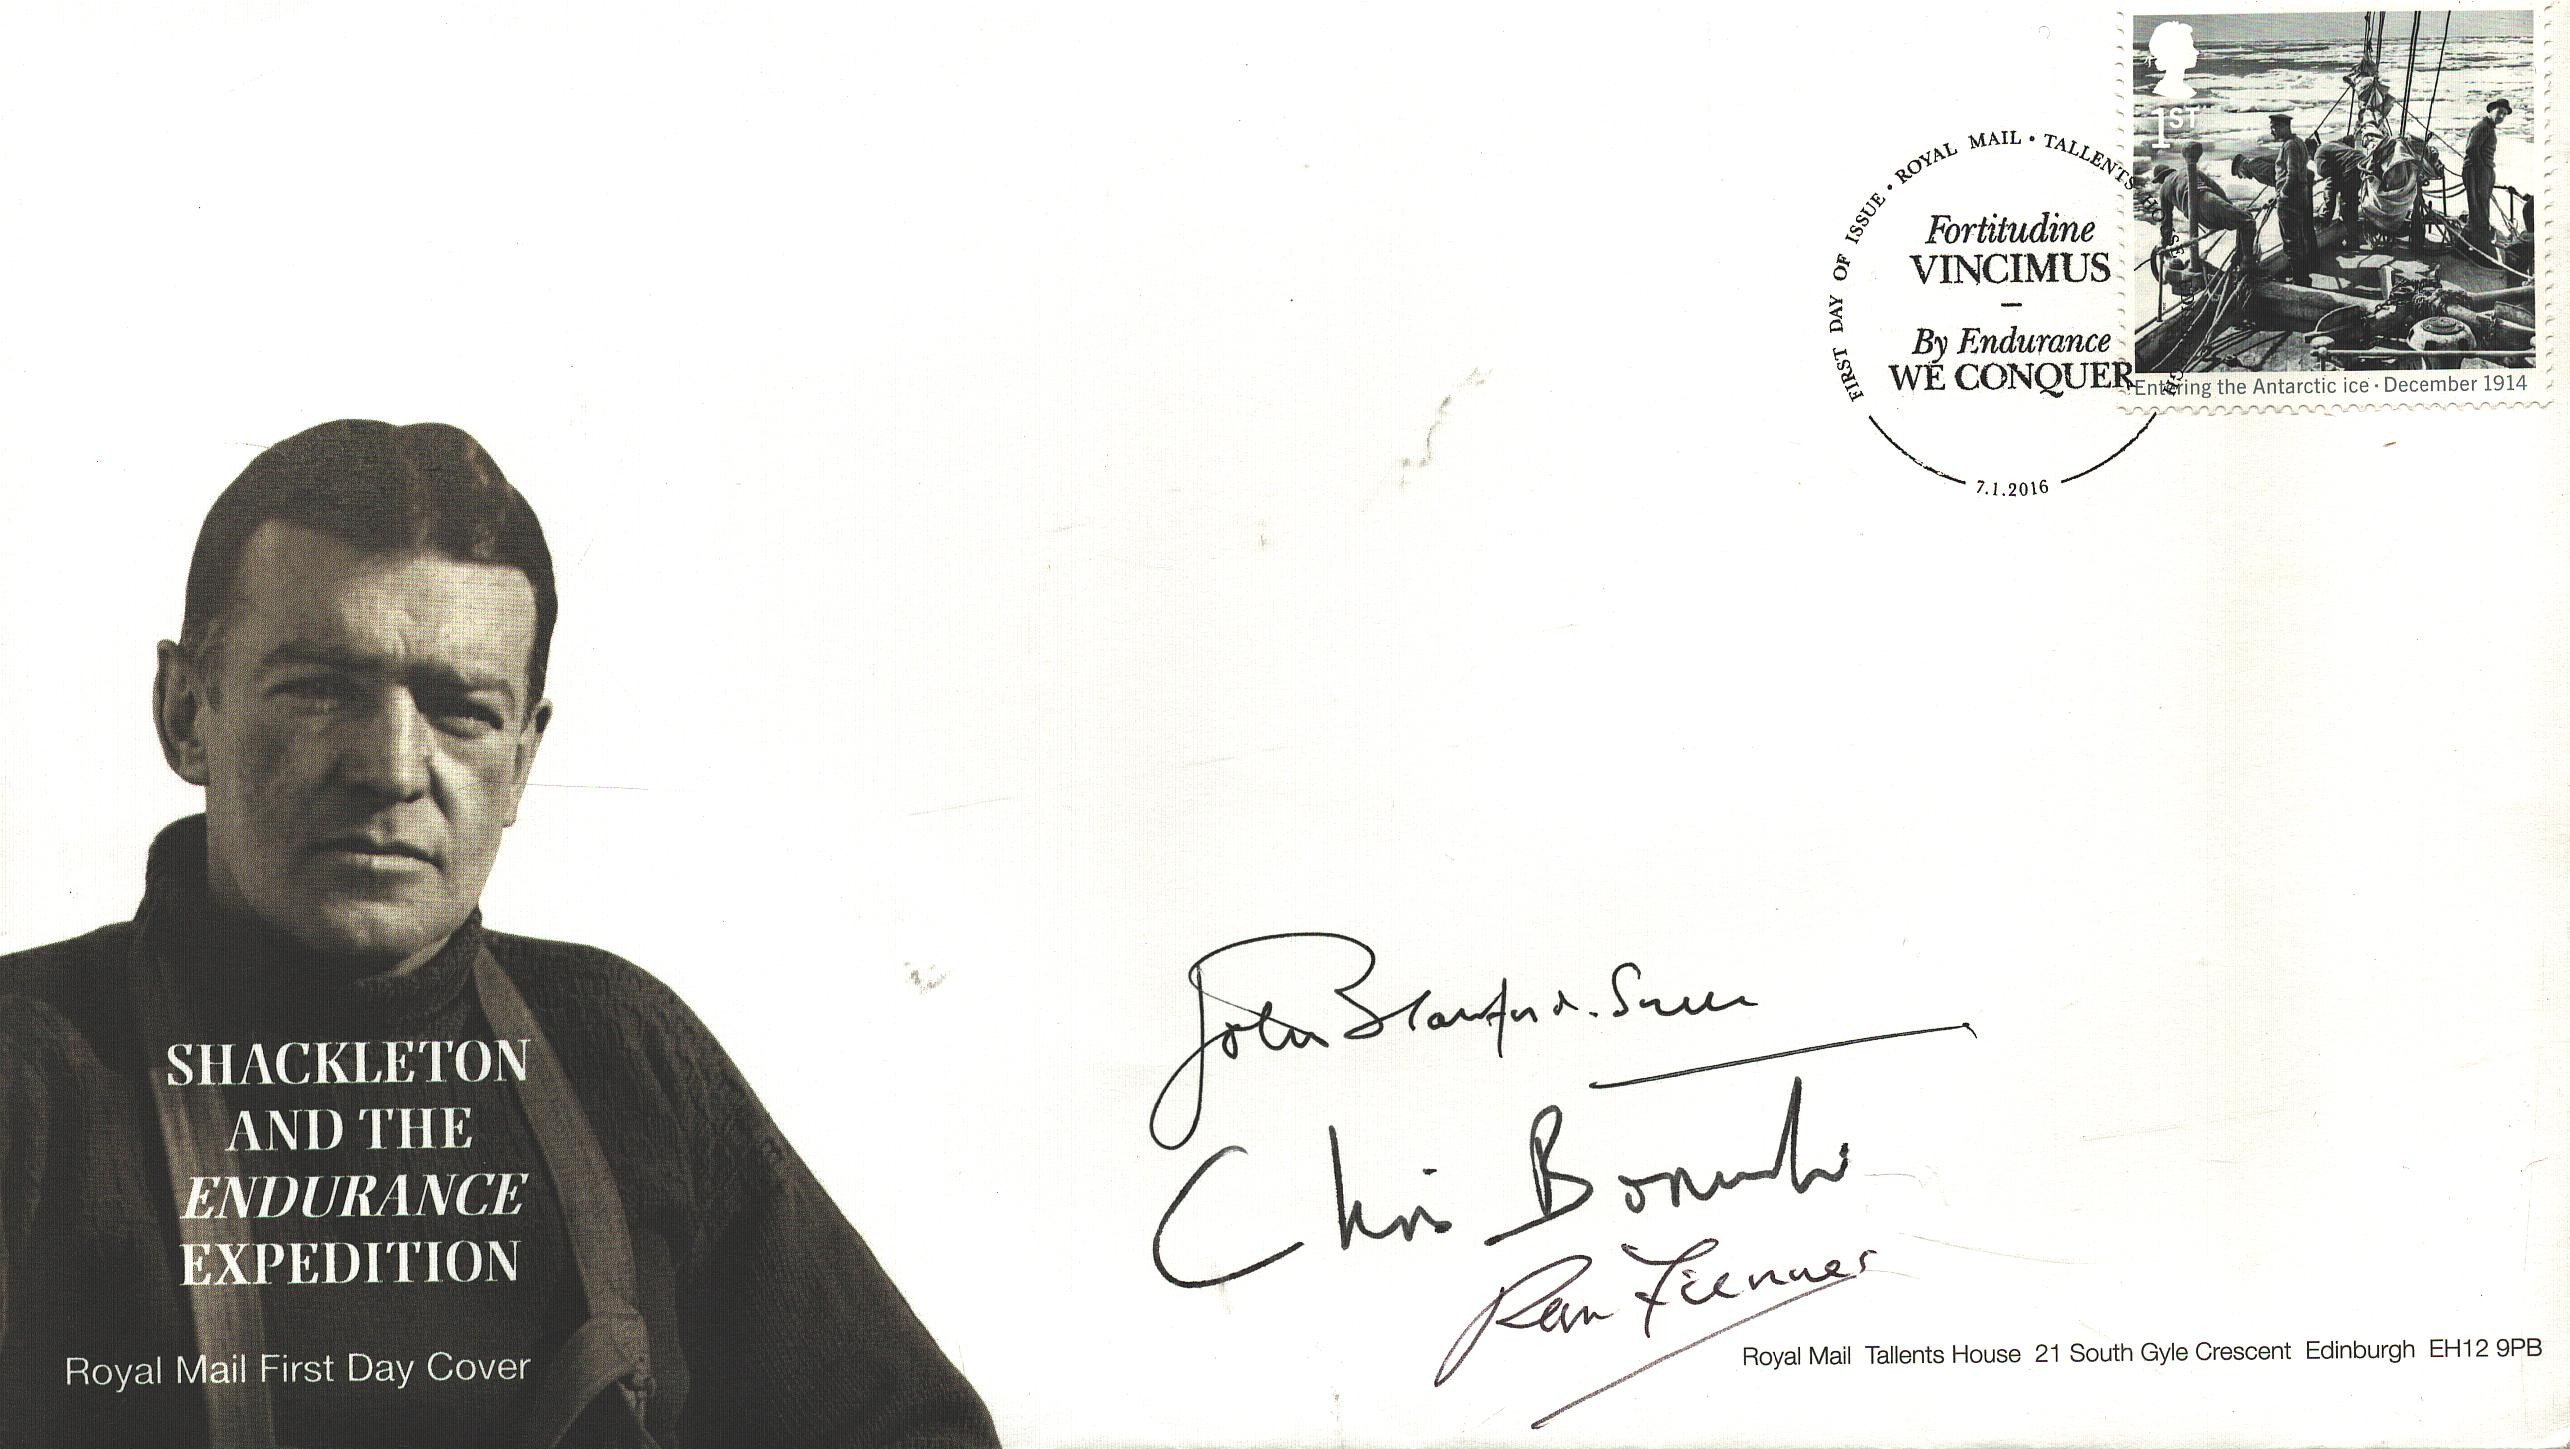 1ST
FIRST DAY OF ISSUE • ROYAL MAIL • TALLENTS HOUSE EDINBURGH
Fortitudine
VINCIMUS
–
By Endurance
WE CONQUER
7.1.2016
Entering the Antarctic ice · December 1914
SHACKLETON
AND THE
ENDURANCE
EXPEDITION
Royal Mail First Day Cover
John Blashford-Snell
Chris Bonington
Ran Fiennes
Royal Mail Tallents House 21 South Gyle Crescent Edinburgh EH12 9PB